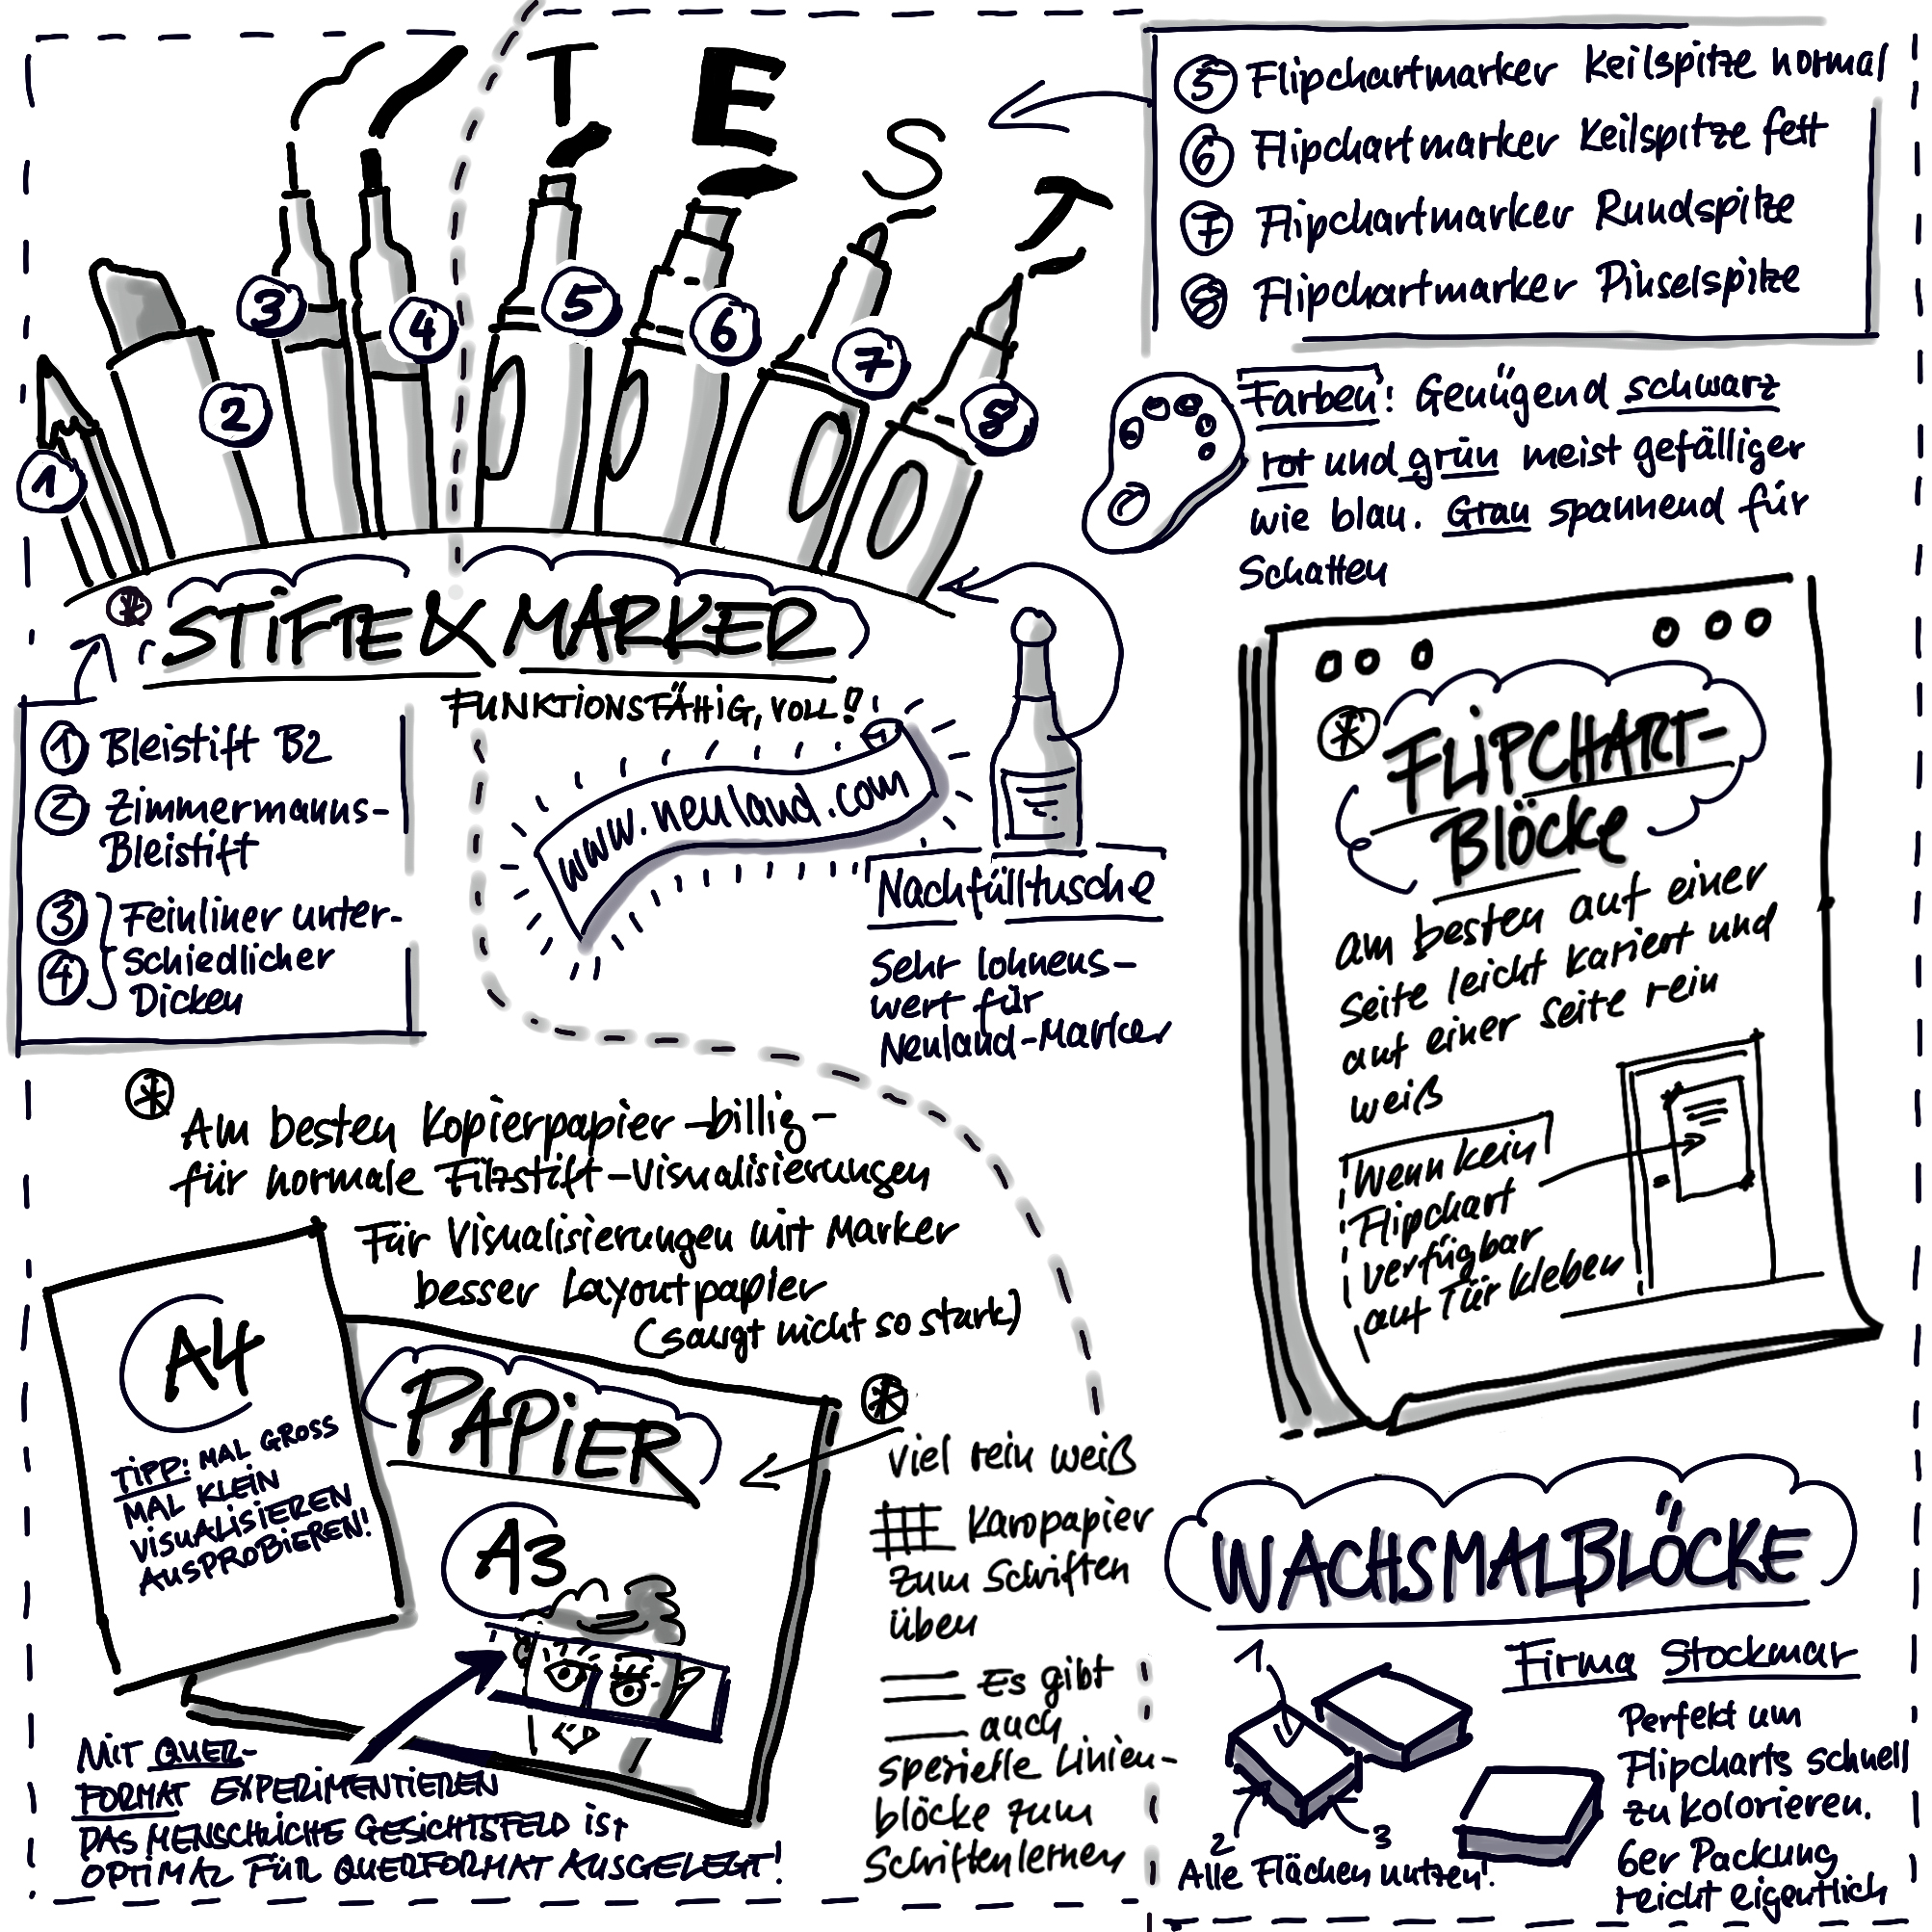 T E S T
5 Flipchartmarker Keilspitze normal
6 Flipchartmarker Keilspitze fett
7 Flipchartmarker Rundspitze
8 Flipchartmarker Pinselspitze
1
2
3
4
5
6
7
8
Farben! Genügend schwarz
rot und grün meist gefälliger
wie blau. Grau spannend für
Schatten
STIFTE & MARKER
FUNKTIONSFÄHIG, VOLL!
1 Bleistift B2
2 Zimmermanns-
Bleistift
3 Feinliner unter-
4 schiedlicher
Dicken
www.neuland.com
Nachfülltusche
Sehr lohnens-
wert für
Neuland-Marker
FLIPCHART-
BLÖCKE
am besten auf einer
Seite leicht kariert und
auf einer Seite rein
weiß
Wenn kein
Flipchart
verfügbar
auf Tür kleben
Am besten Kopierpapier -billig-
für normale Filzstift-Visualisierungen
Für Visualisierungen mit Marker
besser Layoutpapier
(saugt nicht so stark)
A4
TIPP: MAL GROSS
MAL KLEIN
VISUALISIEREN
AUSPROBIEREN!
PAPIER
A3
MIT QUER-
FORMAT EXPERIMENTIEREN
DAS MENSCHLICHE GESICHTSFELD IST
OPTIMAL FÜR QUERFORMAT AUSGELEGT!
viel rein weiß
Karopapier
zum Schriften
üben
Es gibt
auch
spezielle Linien-
blöcke zum
Schriftenlernen
WACHSMALBLÖCKE
Firma Stockmar
1
2
3
Alle Flächen nutzen!
Perfekt um
Flipcharts schnell
zu kolorieren.
6er Packung
reicht eigentlich